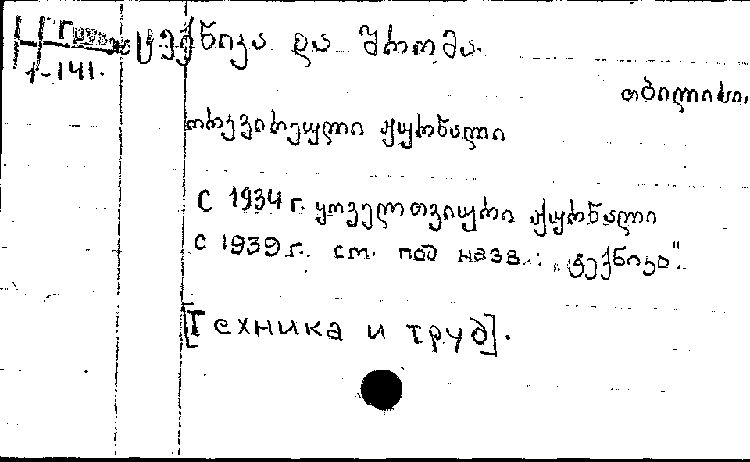 Н Груз
1-141.
ტექნიკა და შრომა.
თბილისი,
ორკვირეული ჟურნალი
С 1934 г. ყოველთვიური ჟურნალი
С 1939 г. см. под назв.: „ტექნიკა“.
[Техника и труд].